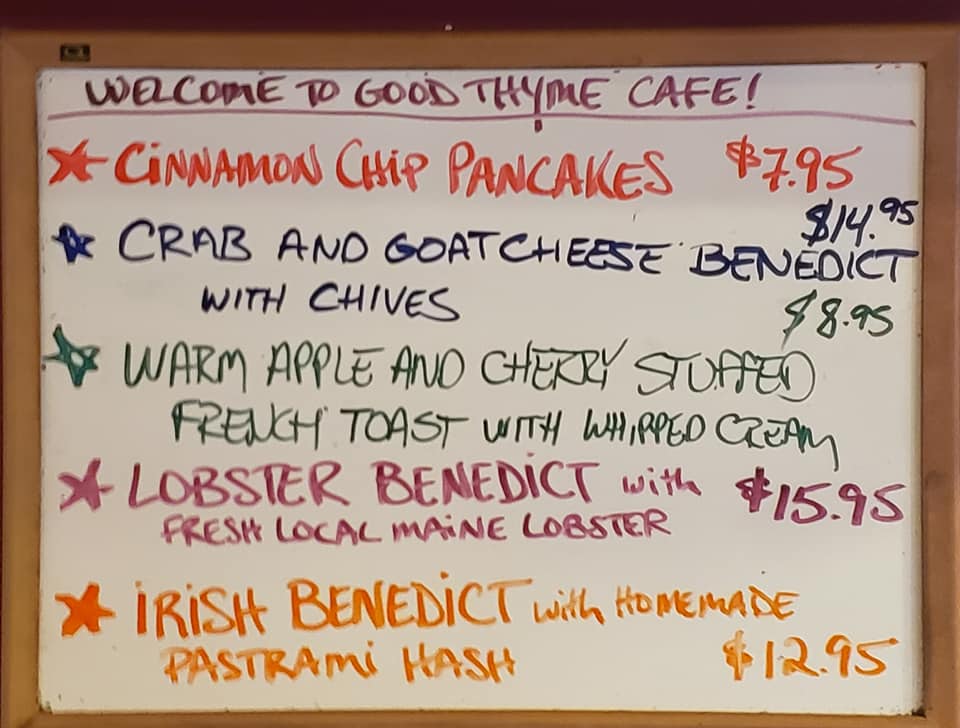 WELCOME TO GOOD THYME CAFE!
CINNAMON CHIP PANCAKES $7.95
$14.95
CRAB AND GOAT CHEESE BENEDICT
WITH CHIVES
$8.95
WARM APPLE AND CHERRY STUFFED
FRENCH TOAST WITH WHIPPED CREAM
LOBSTER BENEDICT with $15.95
FRESH LOCAL MAINE LOBSTER
IRISH BENEDICT with HOMEMADE
PASTRAMI HASH $12.95